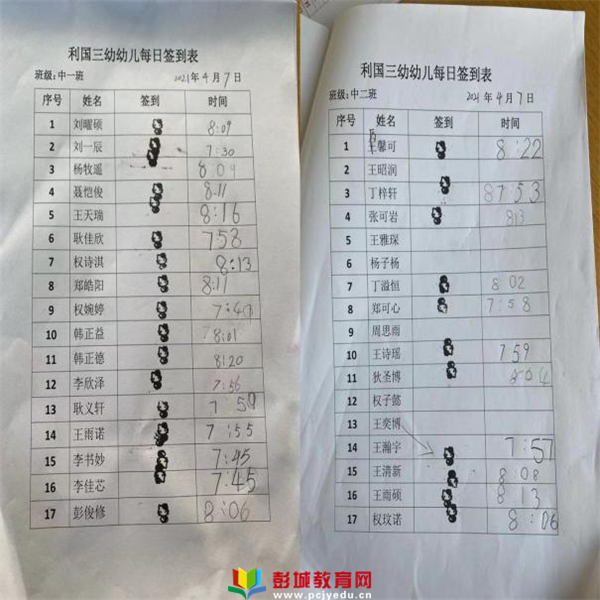 利国三幼幼儿每日签到表
班级:中一班 2021年4月7日
序号 姓名 签到 时间
1 刘曜硕 8:09
2 刘一辰 7:30
3 杨牧遥 8:09
4 聂恺俊 8:11
5 王天瑞 8:16
6 耿佳欣 758
7 权诗淇 8:13
8 郑皓阳 8:11
9 权婉婷 7:40
10 韩正益 8:01
11 韩正德 8:20
12 李欣泽 7:56
13 耿义轩 7:50
14 王雨诺 7:55
15 李书妙 7:45
16 李佳芯 7:45
17 彭俊修 8:06
利国三幼幼儿每日签到表
班级:中二班 2021年4月7日
序号 姓名 签到 时间
1 王馨可 8:22
2 王昭润
3 丁梓轩 87:53
4 张可岩 813
5 王雅琛
6 杨子杨
7 丁溢恒 8 02
8 郑可心 7:58
9 周思雨
10 王诗瑶 7 59
11 狄圣博 8:04
12 权子懿
13 王奕博
14 王瀚宇 7:57
15 王清新 8:08
16 王雨硕 8:13
17 权玟诺 8:06
彭城教育网
www.pcjyedu.cn